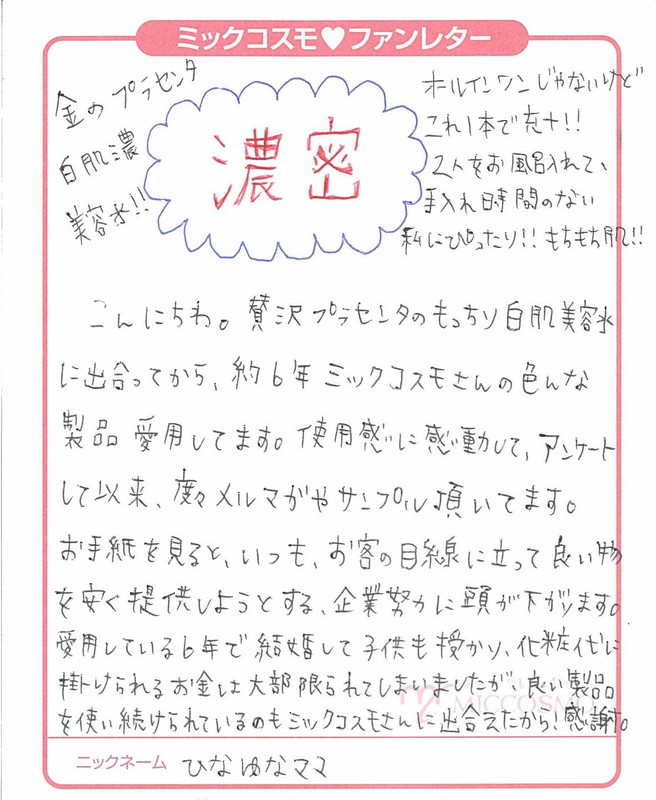 ミックコスモ♥ファンレター
金のプラセンタ
白肌濃
美容水!!
濃密
ホールインワンじゃないけど
これ1本で充十!!
2人をお風呂入れて、
手入れ時間のない
私にぴったり!! もちもち肌!!
こんにちわ。贅沢プラセンタのもっちり白肌美容水
に出合ってから、約6年ミックコスモさんの色んな
製品愛用してます。使用感に感動して、アンケート
して以来、度々メルマガやサンプル頂いてます。
お手紙を見ると、いつも、お客の目線に立って良い物
を安く提供しようとする、企業努力に頭が下がります。
愛用している6年で結婚して子供も授かり、化粧代に
掛けられるお金は大部限られてしまいましたが、良い製品
を使い続けられているのもミックコスモさんに出合えたから!感謝。
MICCOSMO
ニックネーム ひなゆなママ